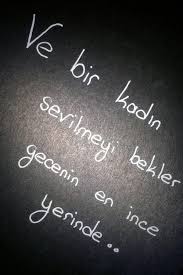 Ve bir kadın
sevilmeyi bekler
gecenin en ince
yerinde..